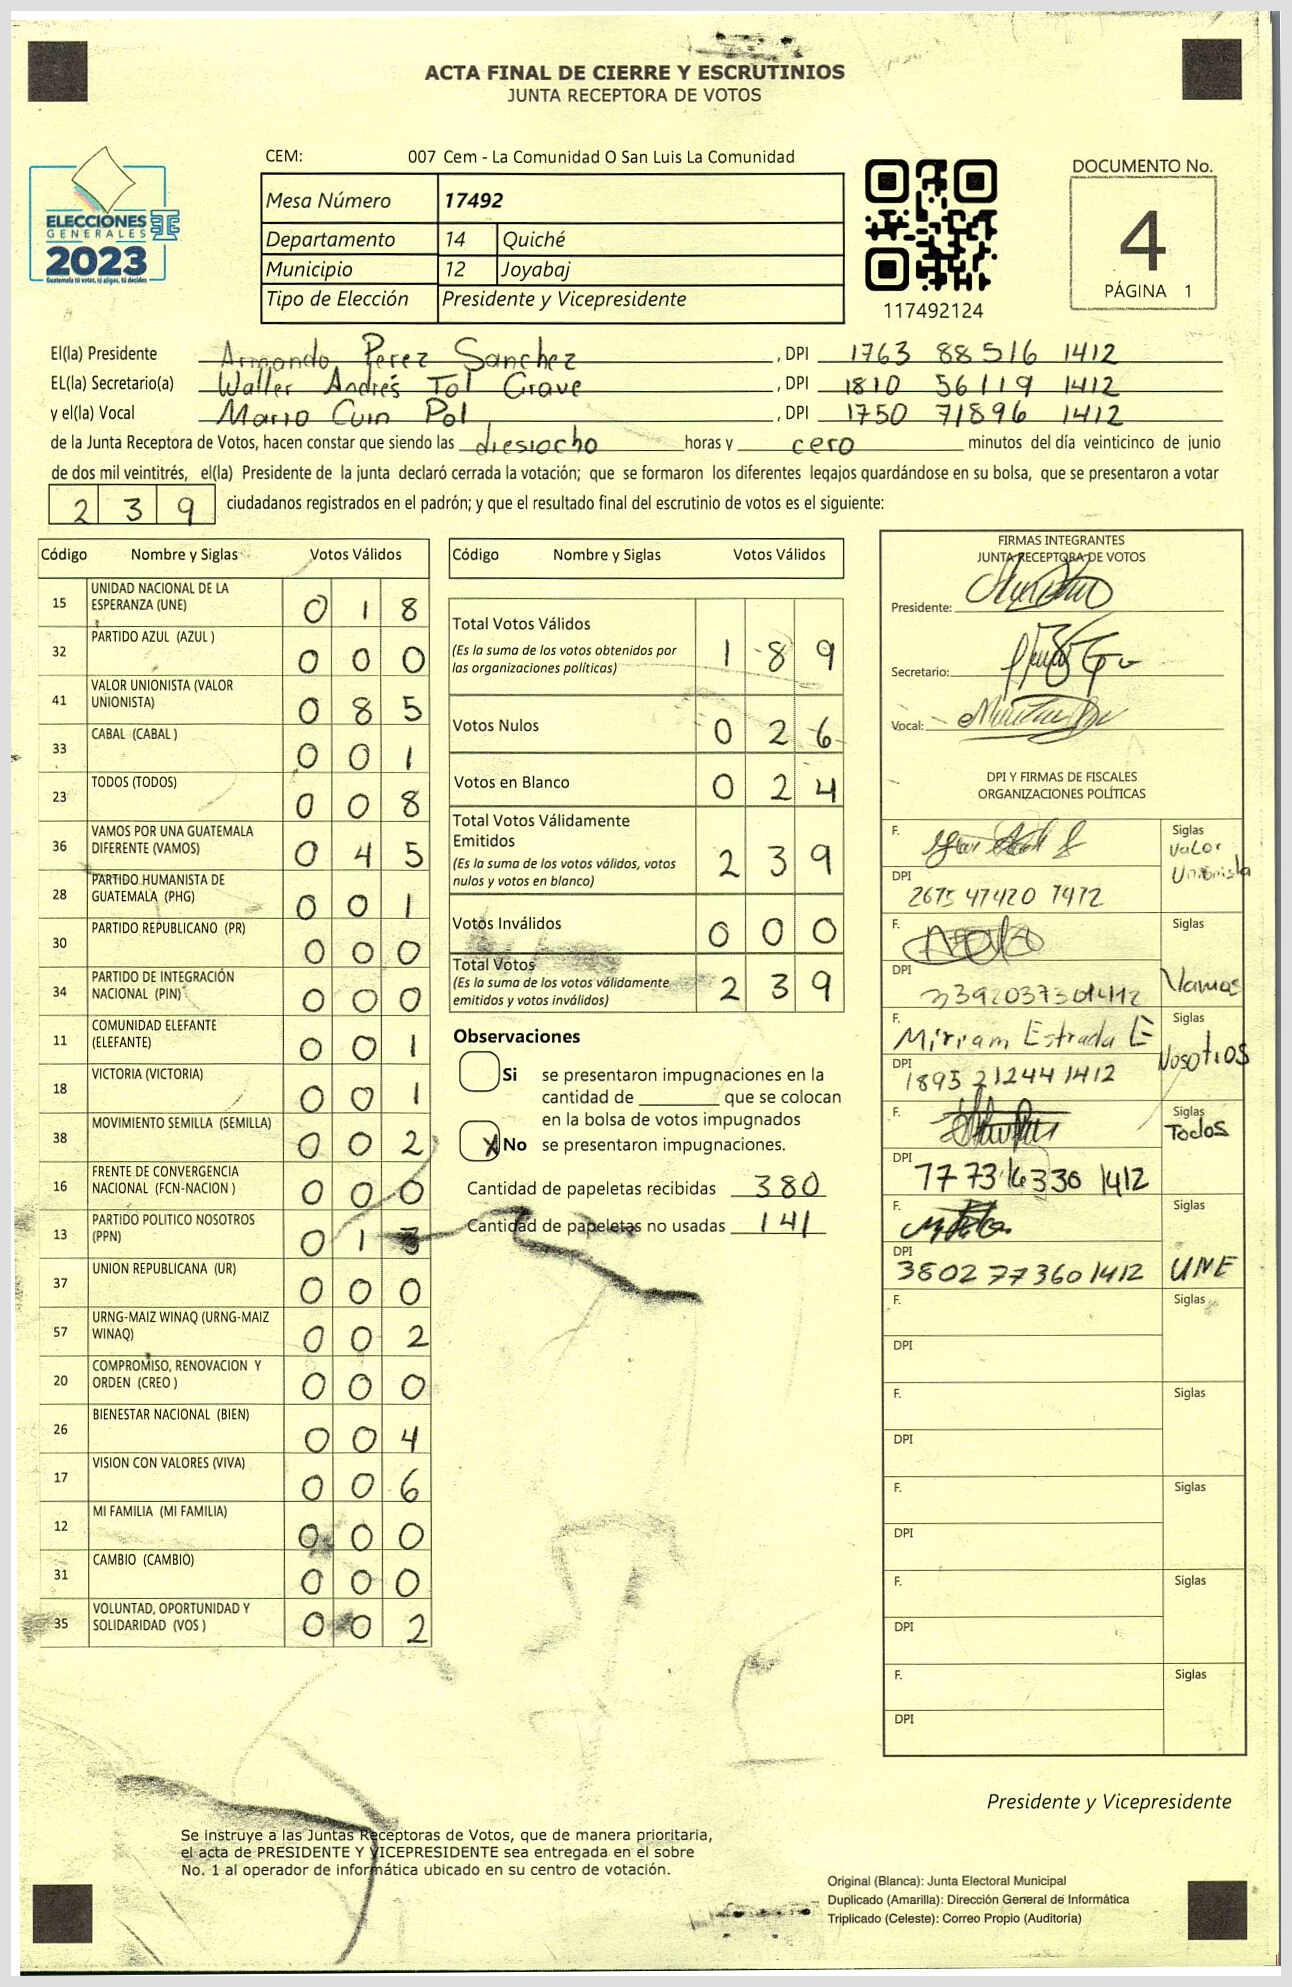 ACTA FINAL DE CIERRE Y ESCRUTINIOS
JUNTA RECEPTORA DE VOTOS
ELECCIONES
GENERALES
2023
Guatemala tú votas, tú eliges, tú decides
CEM: 007 Cem - La Comunidad O San Luis La Comunidad
Mesa Número 17492
Departamento 14 Quiché
Municipio 12 Joyabaj
Tipo de Elección Presidente y Vicepresidente
117492124
DOCUMENTO No.
4
PÁGINA 1
El(la) Presidente Armando Perez Sanchez , DPI 1763 88516 1412
EL(la) Secretario(a) Walter Andrés Tol Grave , DPI 1810 56119 1412
y el(la) Vocal Mario Cuin Pol , DPI 1750 71896 1412
de la Junta Receptora de Votos, hacen constar que siendo las diesiocho horas y cero minutos del día veinticinco de junio
de dos mil veintitrés, el(la) Presidente de la junta declaró cerrada la votación; que se formaron los diferentes legajos guardándose en su bolsa, que se presentaron a votar
2 3 9 ciudadanos registrados en el padrón; y que el resultado final del escrutinio de votos es el siguiente:
Código Nombre y Siglas Votos Válidos
15 UNIDAD NACIONAL DE LA ESPERANZA (UNE) 0 1 8
32 PARTIDO AZUL (AZUL ) 0 0 0
41 VALOR UNIONISTA (VALOR UNIONISTA) 0 8 5
33 CABAL (CABAL ) 0 0 1
23 TODOS (TODOS) 0 0 8
36 VAMOS POR UNA GUATEMALA DIFERENTE (VAMOS) 0 4 5
28 PARTIDO HUMANISTA DE GUATEMALA (PHG) 0 0 1
30 PARTIDO REPUBLICANO (PR) 0 0 0
34 PARTIDO DE INTEGRACIÓN NACIONAL (PIN) 0 0 0
11 COMUNIDAD ELEFANTE (ELEFANTE) 0 0 1
18 VICTORIA (VICTORIA) 0 0 1
38 MOVIMIENTO SEMILLA (SEMILLA) 0 0 2
16 FRENTE DE CONVERGENCIA NACIONAL (FCN-NACION ) 0 0 0
13 PARTIDO POLITICO NOSOTROS (PPN) 0 1 3
37 UNION REPUBLICANA (UR) 0 0 0
57 URNG-MAIZ WINAQ (URNG-MAIZ WINAQ) 0 0 2
20 COMPROMISO, RENOVACION Y ORDEN (CREO ) 0 0 0
26 BIENESTAR NACIONAL (BIEN) 0 0 4
17 VISION CON VALORES (VIVA) 0 0 6
12 MI FAMILIA (MI FAMILIA) 0 0 0
31 CAMBIO (CAMBIO) 0 0 0
35 VOLUNTAD, OPORTUNIDAD Y SOLIDARIDAD (VOS ) 0 0 2
Código Nombre y Siglas Votos Válidos
Total Votos Válidos 1 8 9
(Es la suma de los votos obtenidos por
las organizaciones políticas)
Votos Nulos 0 2 6
Votos en Blanco 0 2 4
Total Votos Válidamente
Emitidos 2 3 9
(Es la suma de los votos válidos, votos
nulos y votos en blanco)
Votos Inválidos 0 0 0
Total Votos 2 3 9
(Es la suma de los votos válidamente
emitidos y votos inválidos)
Observaciones
Si se presentaron impugnaciones en la
cantidad de ________ que se colocan
en la bolsa de votos impugnados
X No se presentaron impugnaciones.
Cantidad de papeletas recibidas 380
Cantidad de papeletas no usadas 141
FIRMAS INTEGRANTES
JUNTA RECEPTORA DE VOTOS
Presidente:
Secretario:
Vocal:
DPI Y FIRMAS DE FISCALES
ORGANIZACIONES POLÍTICAS
F. Siglas
Valor
Unionista
DPI
2675 47420 1412
F. Siglas
DPI
3392037301412 Vamos
F. Siglas
Mirriam Estrada E
Nosotros
DPI
1895 21244 1412
F. Siglas
Todos
DPI
1773 16330 1412
F. Siglas
DPI
3802 77360 1412 UNE
F. Siglas
DPI
F. Siglas
DPI
F. Siglas
DPI
F. Siglas
DPI
F. Siglas
DPI
Presidente y Vicepresidente
Se instruye a las Juntas Receptoras de Votos, que de manera prioritaria,
el acta de PRESIDENTE Y VICEPRESIDENTE sea entregada en el sobre
No. 1 al operador de informática ubicado en su centro de votación.
Original (Blanca): Junta Electoral Municipal
Duplicado (Amarilla): Dirección General de Informática
Triplicado (Celeste): Correo Propio (Auditoría)